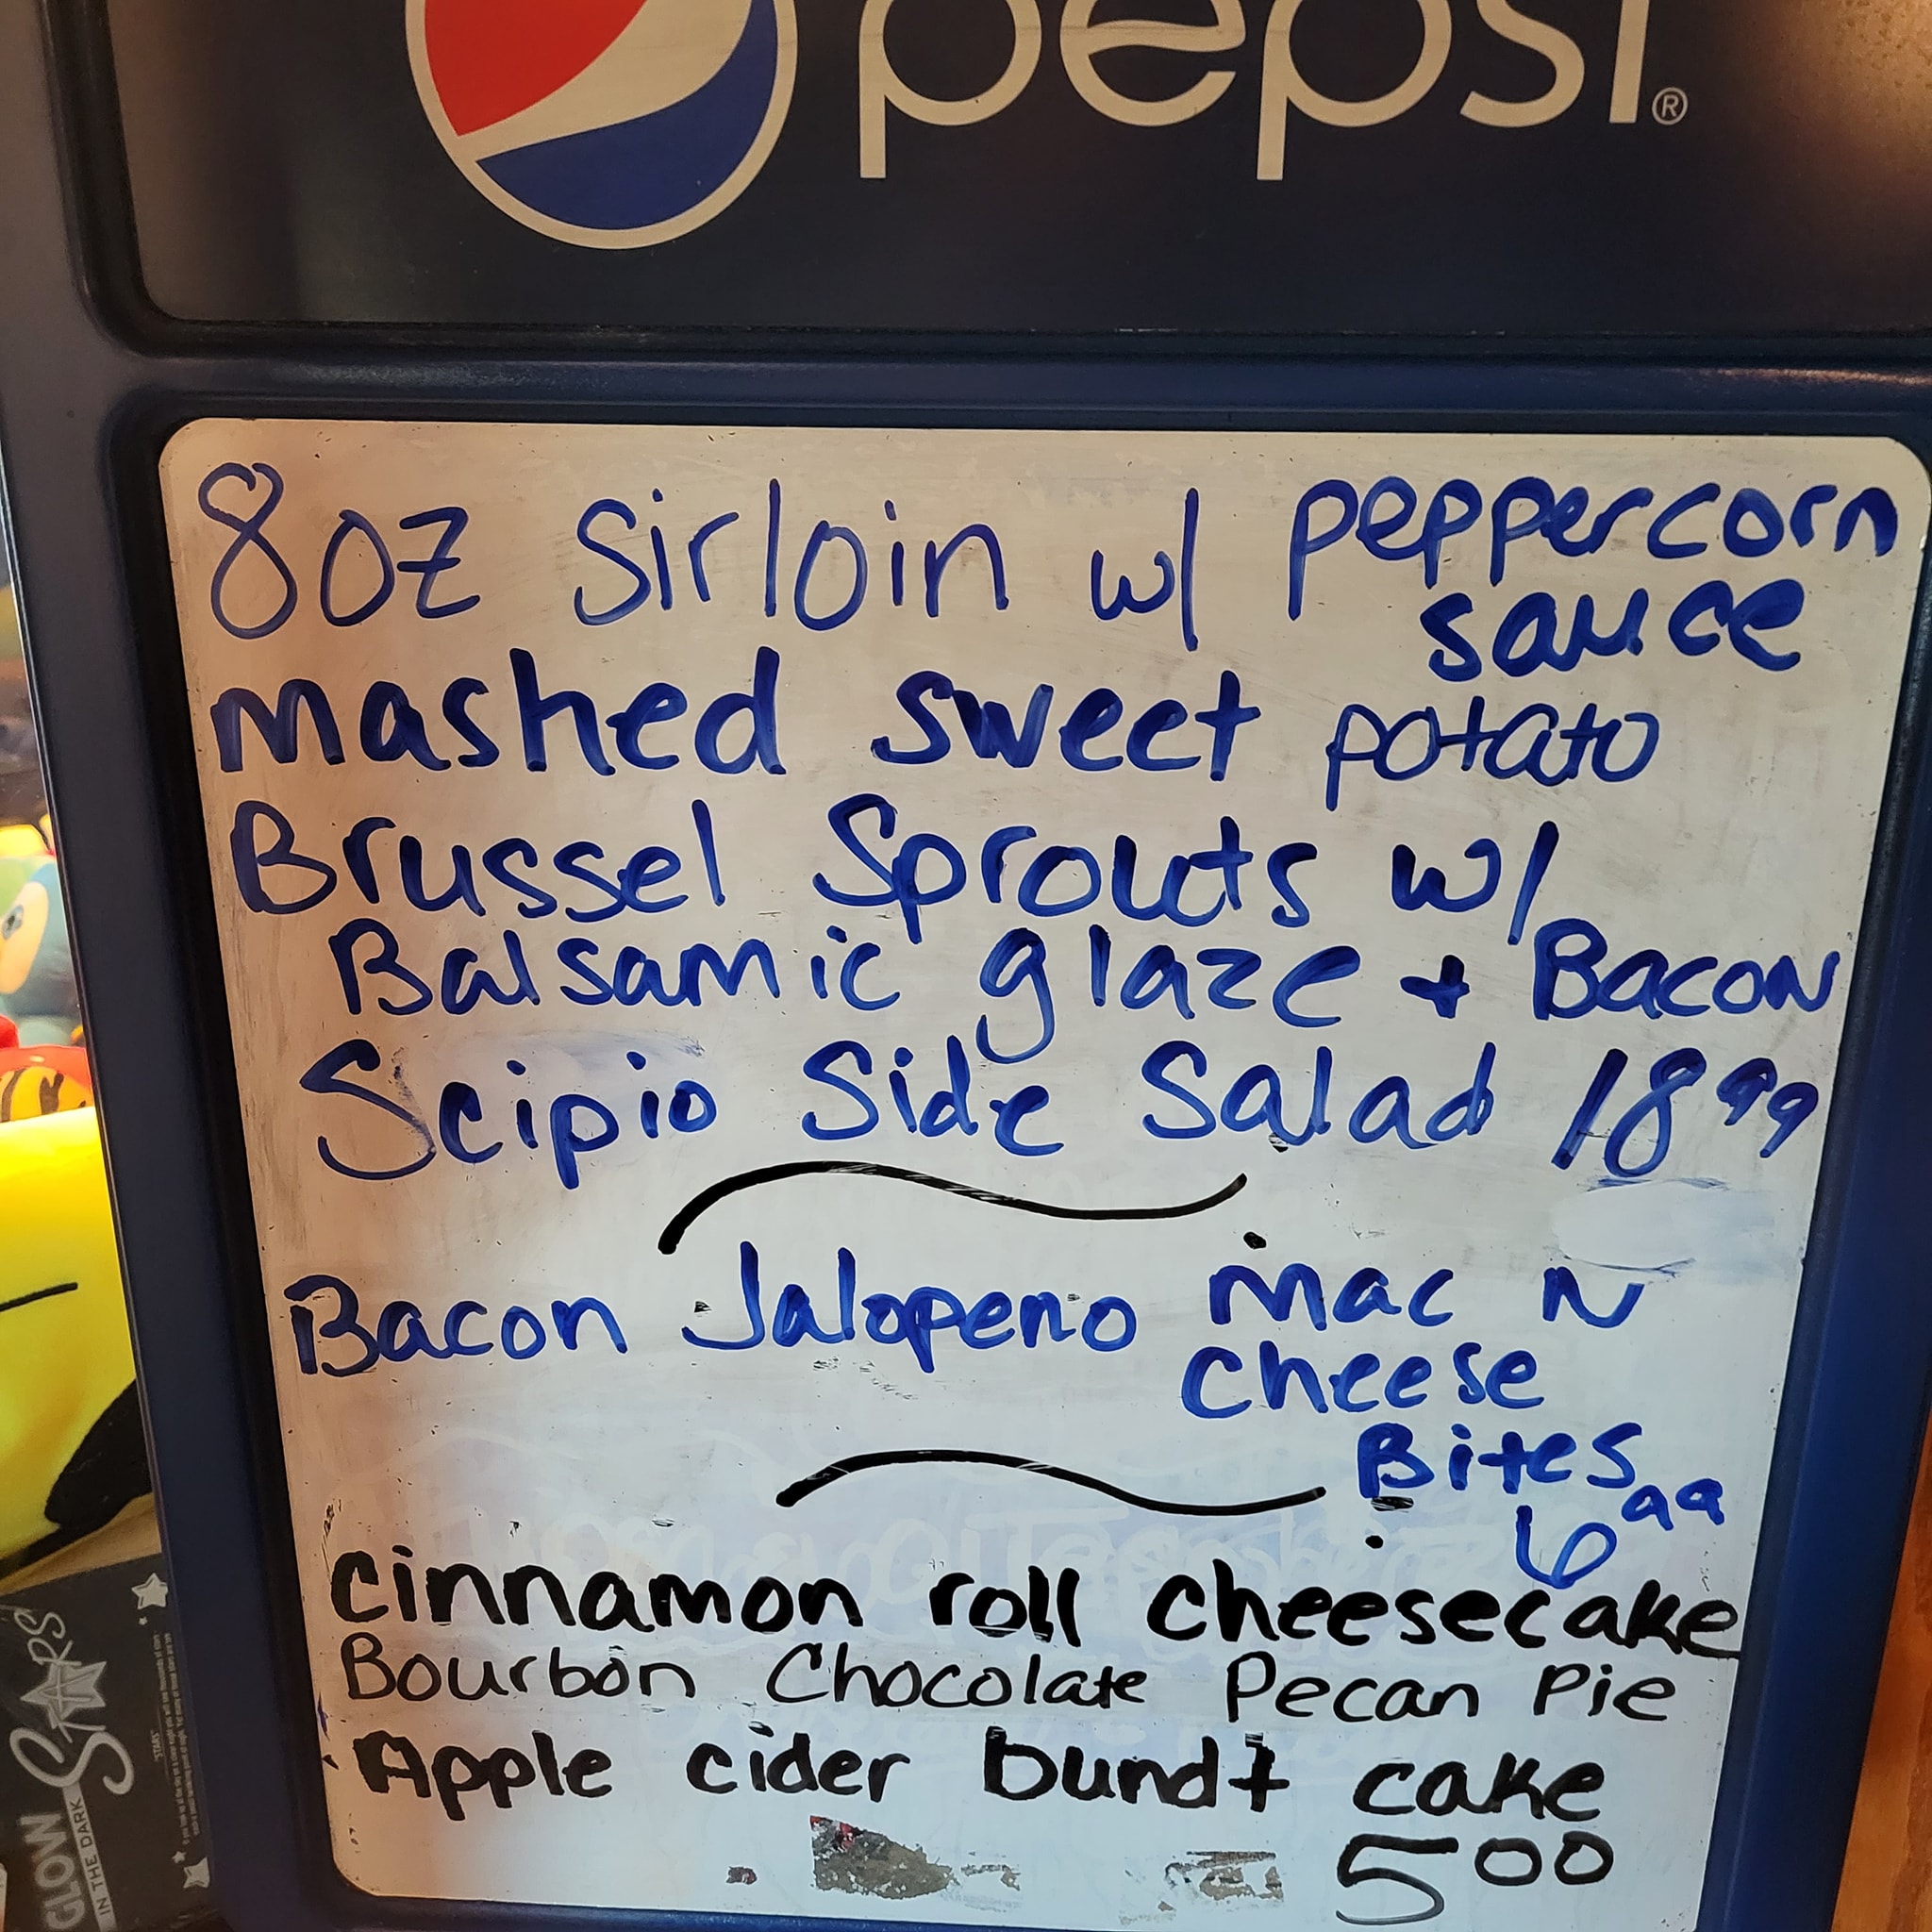 pepsi®
8oz Sirloin w/ peppercorn
sauce
mashed sweet potato
Brussel Sprouts w/
Balsamic glaze + Bacon
Scipio Side Salad 18 99
Bacon Jalopeno Mac N
Cheese
Bites
6 99
cinnamon roll cheesecake
Bourbon Chocolate Pecan Pie
Apple cider bundt cake
5 00
GLOW
IN THE DARK
STARS
"STARS"